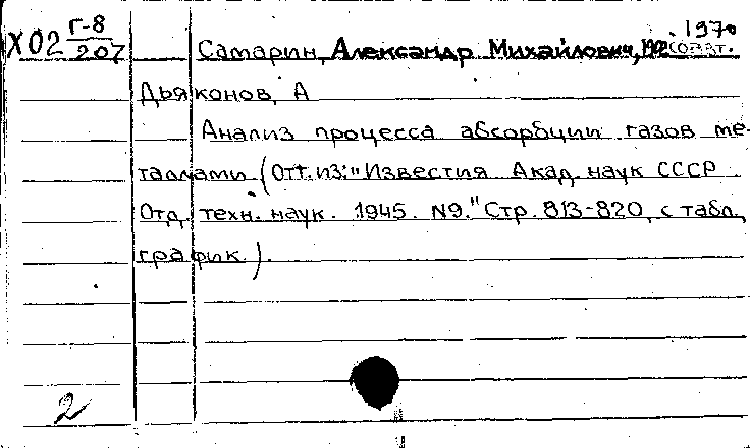 Х02 Г-8/207
Самарин, Александр Михайлович, 1902 соавт. 1970
Дьяконов, А
Анализ процесса абсорбции газов ме-
таллами (Отт. из: "Известия Акад. наук СССР
Отд. техн. наук. 1945. N9." Стр. 813-820, с табл.,
график.).
2